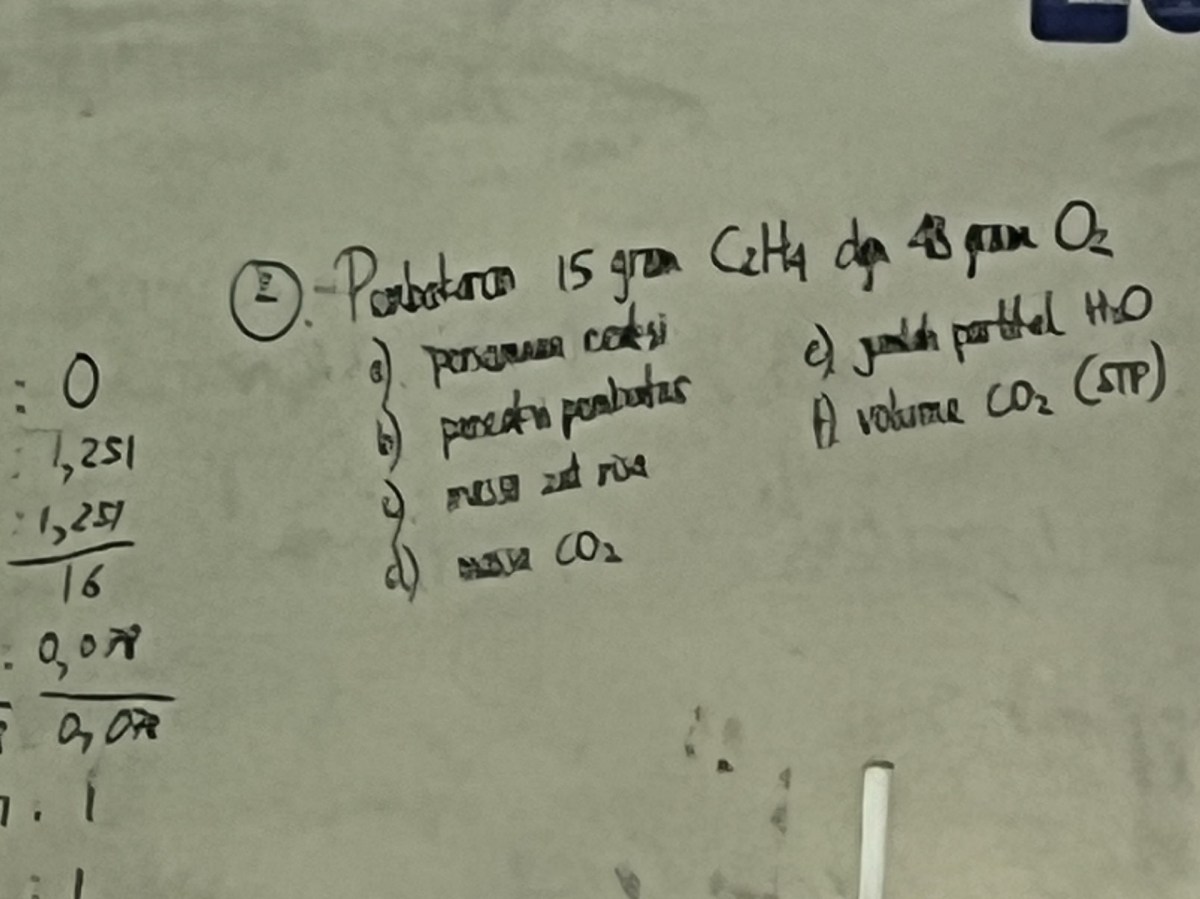 : 0
: 1,251
: 1,251
16
: 0,078
0,078
. 1
: 1
2. - Pembakaran 15 gram C2H4 dgn 48 gram O2
a) persamaan reaksi
b) pereaksi pembatas
c) massa zat sisa
d) massa CO2
e) jumlah partikel H2O
f) volume CO2 (STP)